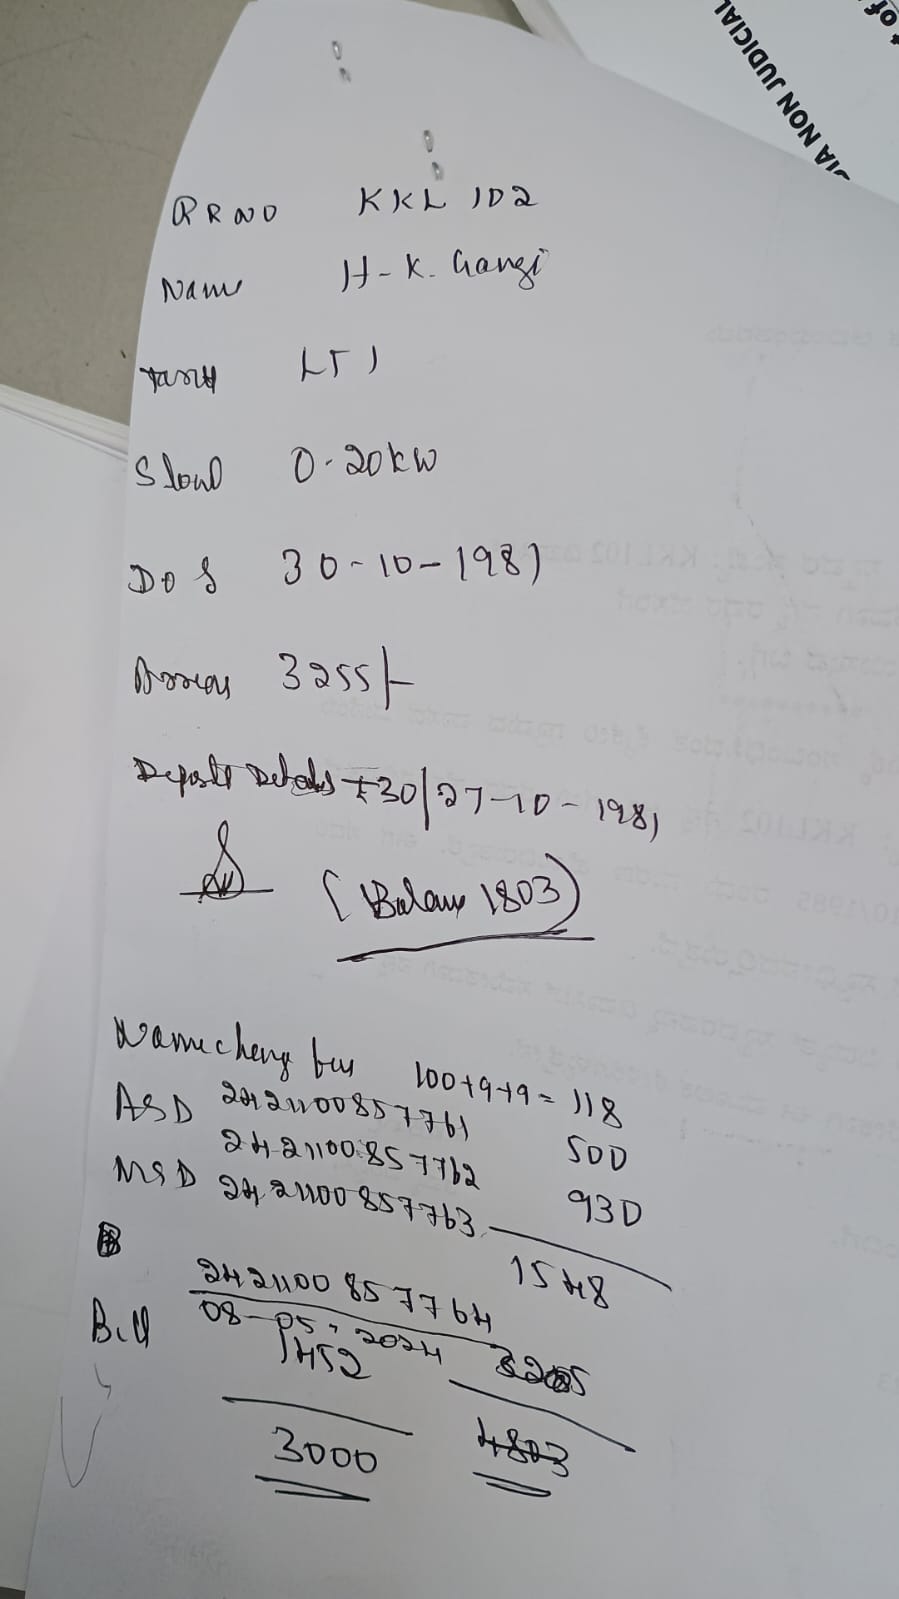 of
DIA NON JUDICIAL
RRNO KKL 102
Name H-K. Gangi
Tariff LT1
S load 0-20kW
DOS 30-10-1981
Arrears 3255/-
Deposit Details ₹30/27-10-1981
(Balance 1803)
Namechang fees 100+9+9= 118
ASD 2421100857761 500
2421100857762
MSD 2421100857763 930
1548
2421100857764
Bill 08-05-2024 3255
1452
3000 4803